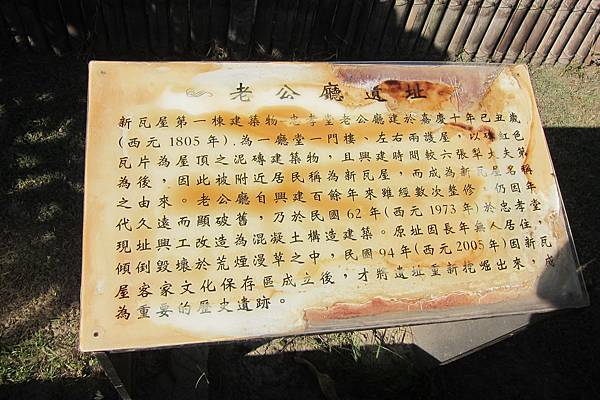 老公廳遺址
新瓦屋第一棟建築物-忠孝堂老公廳建於嘉慶十年己丑歲
(西元 1805 年).為一廳堂一門樓、左右兩護屋,以磚紅色
瓦片為屋頂之泥磚建築物,且興建時間較六張犁大夫第
為後,因此被附近居民稱為新瓦屋,而成為新瓦屋名稱
之由來。老公廳自興建百餘年來雖經數次整修,仍因年
代久遠而顯破舊,乃於民國 62 年(西元 1973 年)於忠孝堂
現址興工改造為混凝土構造建築。原址因長年無人居住,
傾倒毀壞於荒煙漫草之中,民國 94 年(西元 2005 年)因新瓦
屋客家文化保存區成立後,才將遺址重新挖掘出來,成
為重要的歷史遺跡。